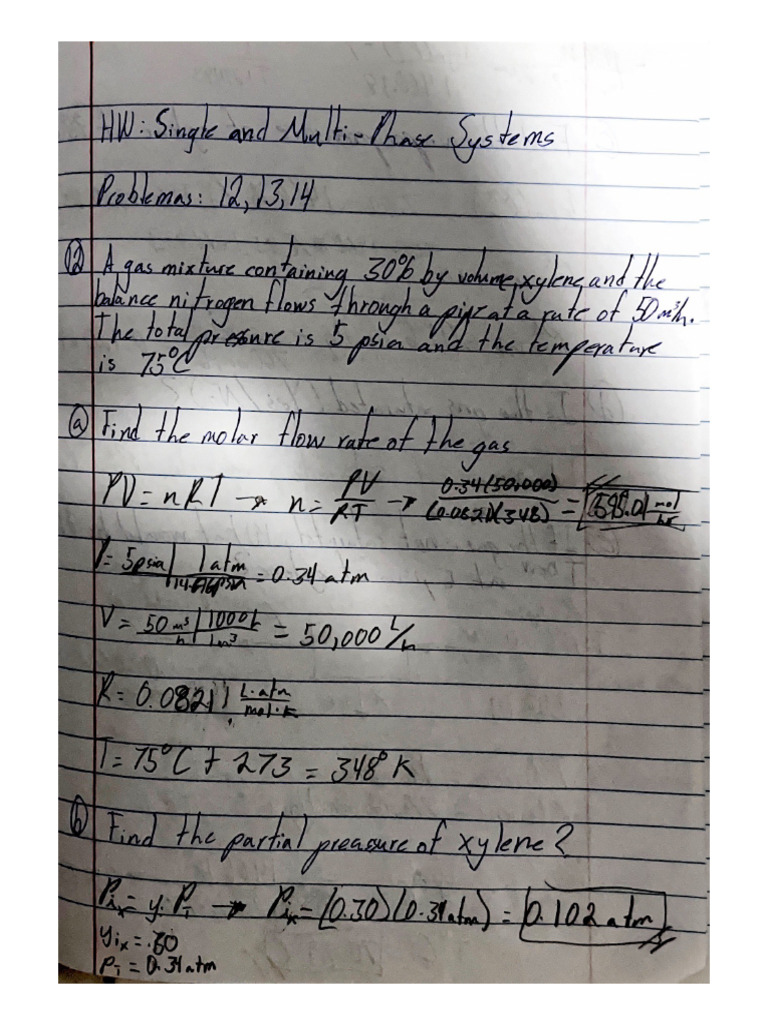 HW: Single and Multi-Phase Systems
Problemas: 12, 13, 14
12 A gas mixture containing 30% by volume, xylene, and the
balance nitrogen flows through a pipe at a rate of 50 m³/h.
The total pressure is 5 psia and the temperature
is 75°C
a Find the molar flow rate of the gas
PV = nRT → n = PV/RT → 0.34(50,000)/(0.0821)(348) = 595.01 mol/hr
P = 5psia | 1 atm / psia = 0.34 atm
V = 50 m³/h | 1000 L / 1m³ = 50,000 L/h
R = 0.0821 L·atm/mol·K
T = 75°C + 273 = 348°K
b Find the partial preassure of xylene?
Pix = yi PT → Pix = (0.30)(0.34atm) = 0.102 atm
yix = .30
PT = 0.34 atm